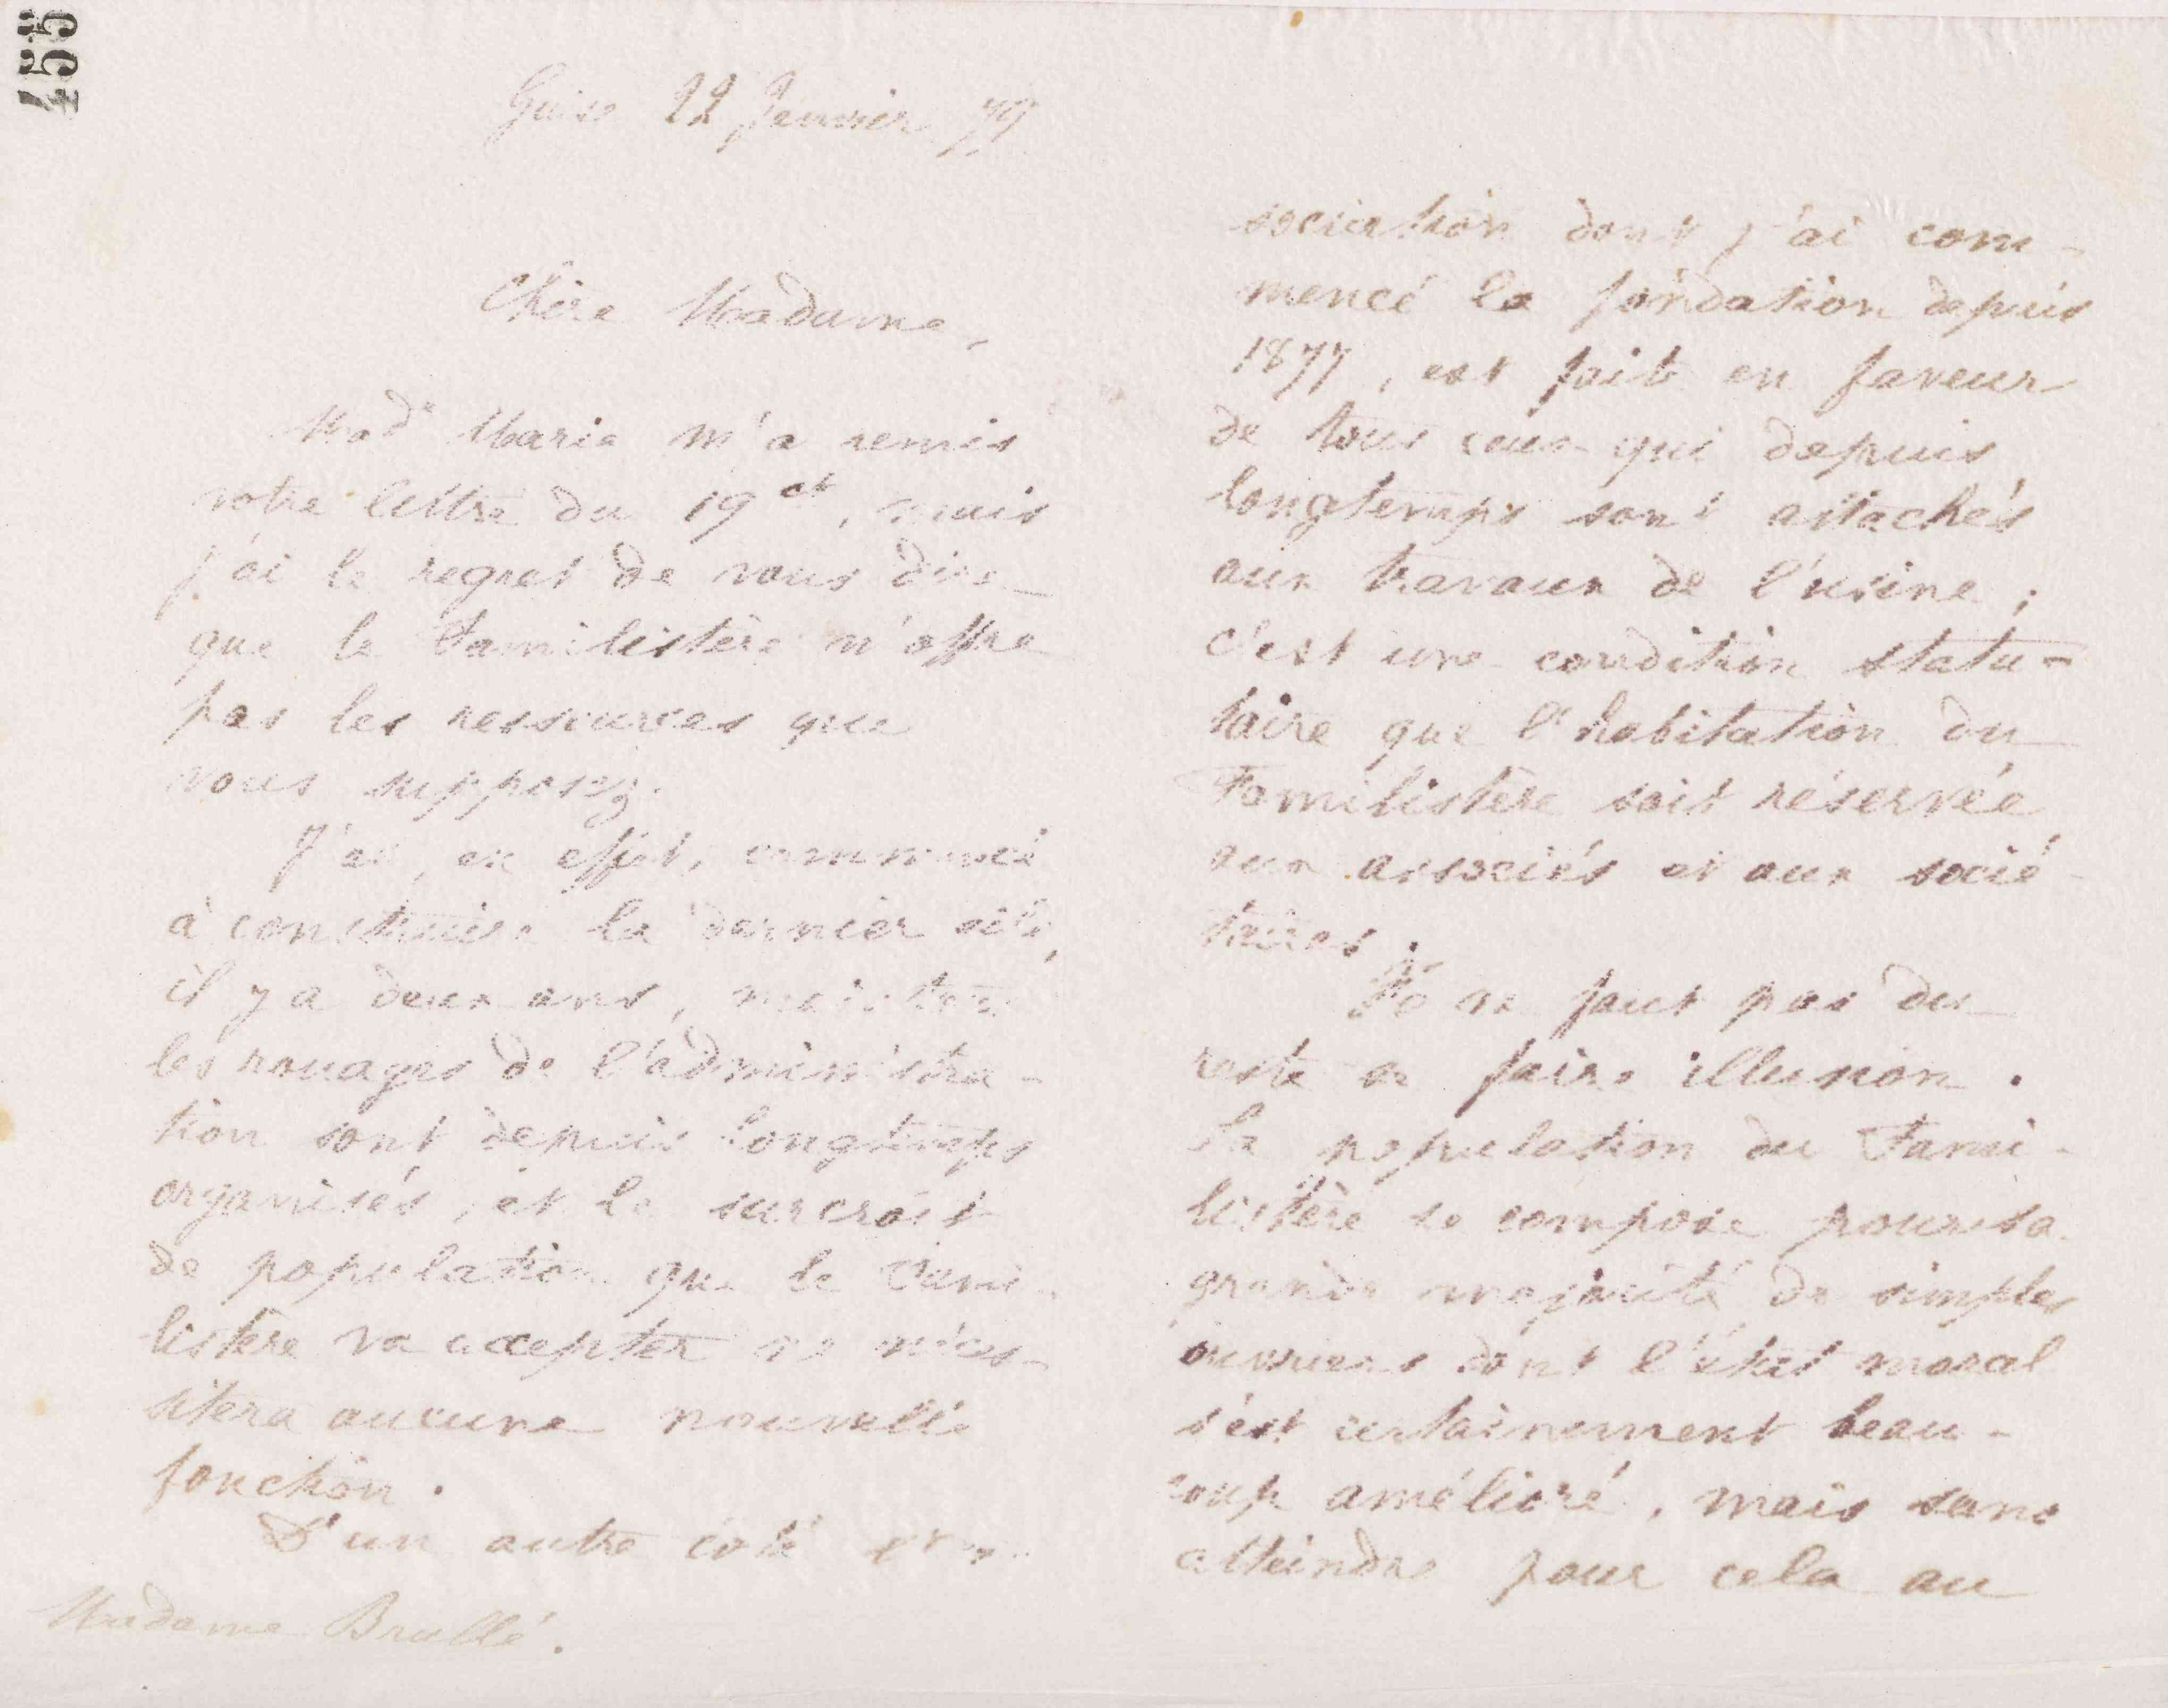 455
Guise 22 Janvier 79
Chère Madame,
Made Marie m'a remis
votre lettre du 19 ct, mais
j'ai le regret de vous dire
que le Familistère n'offre
pas les ressources que
vous supposez.
J'ai, en effet, commencé
à construire le dernier côté,
il y a deux ans, mais tous
les rouages de l'administra-
tion sont depuis longtemps
organisés, et le surcroît
de population que le Fami-
listère va accepter ne néces-
sitera aucune nouvelle
fonction.
D'un autre côté
Madame Brullé.
sociation dont j'ai com-
mencé la fondation depuis
1877, est fait en faveur
de tous ceux qui depuis
longtemps sont attachés
aux travaux de l'usine ;
c'est une condition statu-
taire que l'habitation du
Familistère soit réservée
aux associés et aux socié-
taires.
Il ne faut pas du
reste se faire illusion.
La population du Fami-
listère se compose pour sa
grande majorité de simples
ouvriers dont l'état moral
s'est certainement beau-
coup amélioré, mais sans
atteindre pour cela au